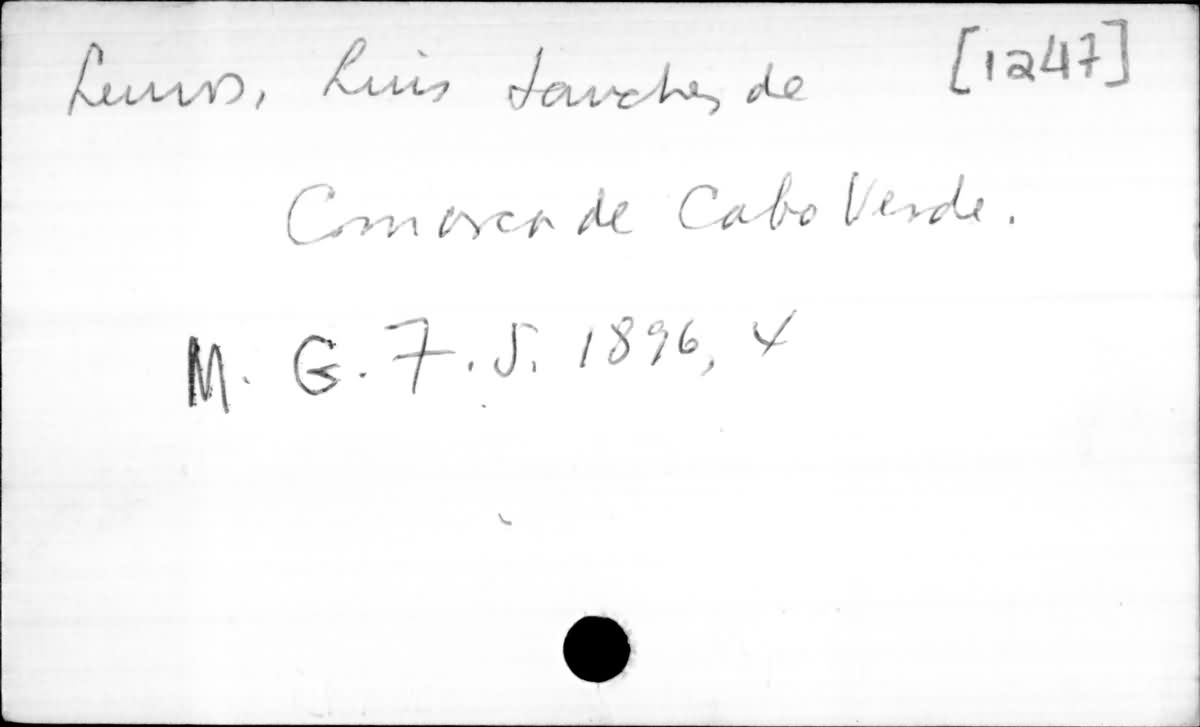 Lemos, Luis Sanches de [1247]
Comarca de Cabo Verde.
M. G. 7. 5. 1896, 4